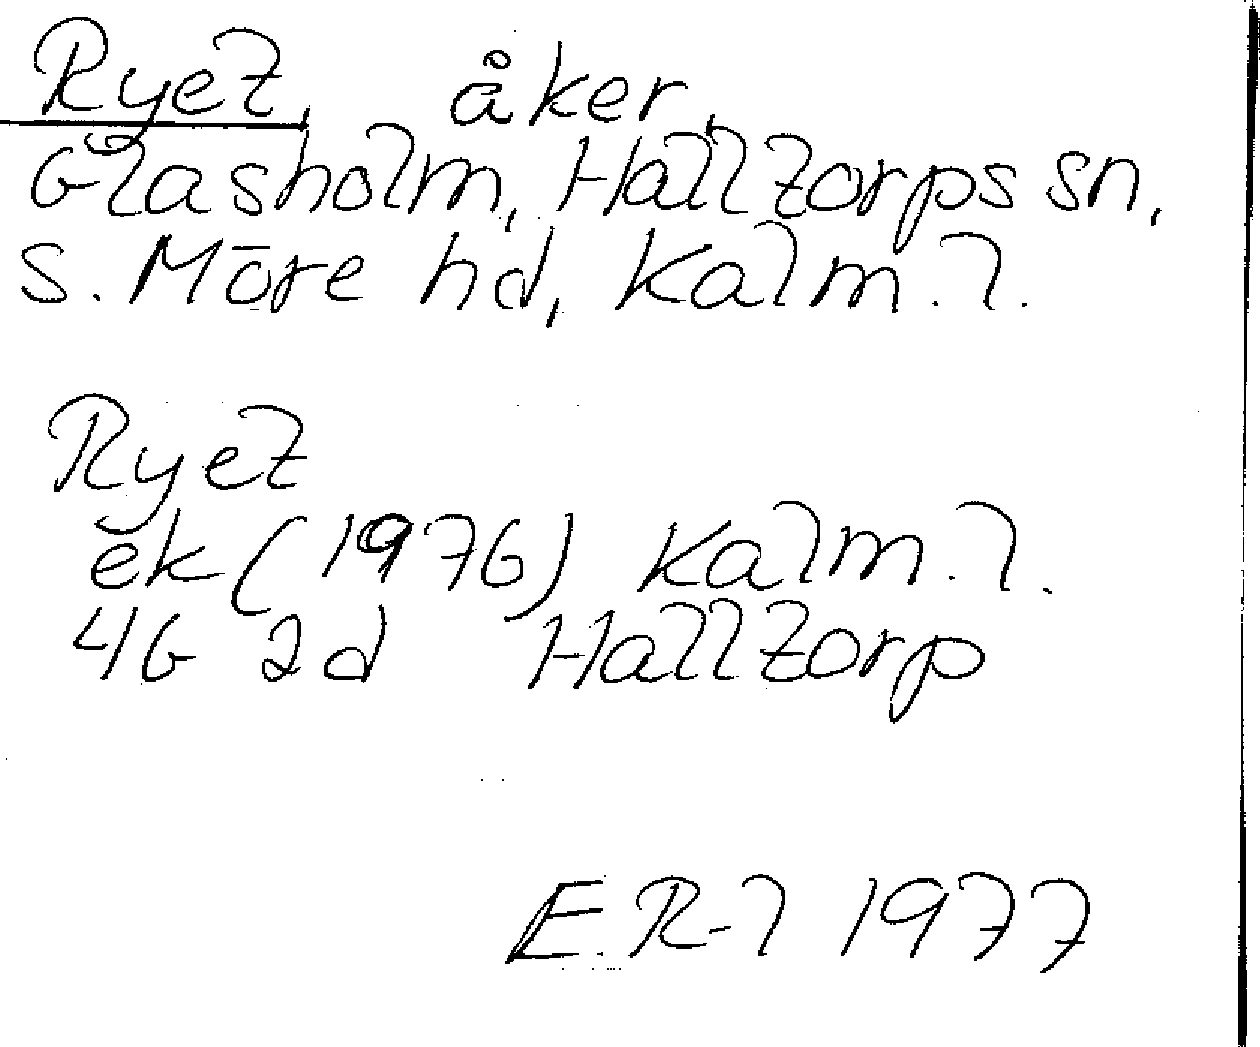 Ryet, åker,
Glasholm, Halltorps sn,
S. Möre hd, Kalm. l.
Ryet
ek (1976) Kalm. l.
4G 2d Halltorp
E. R-l 1977